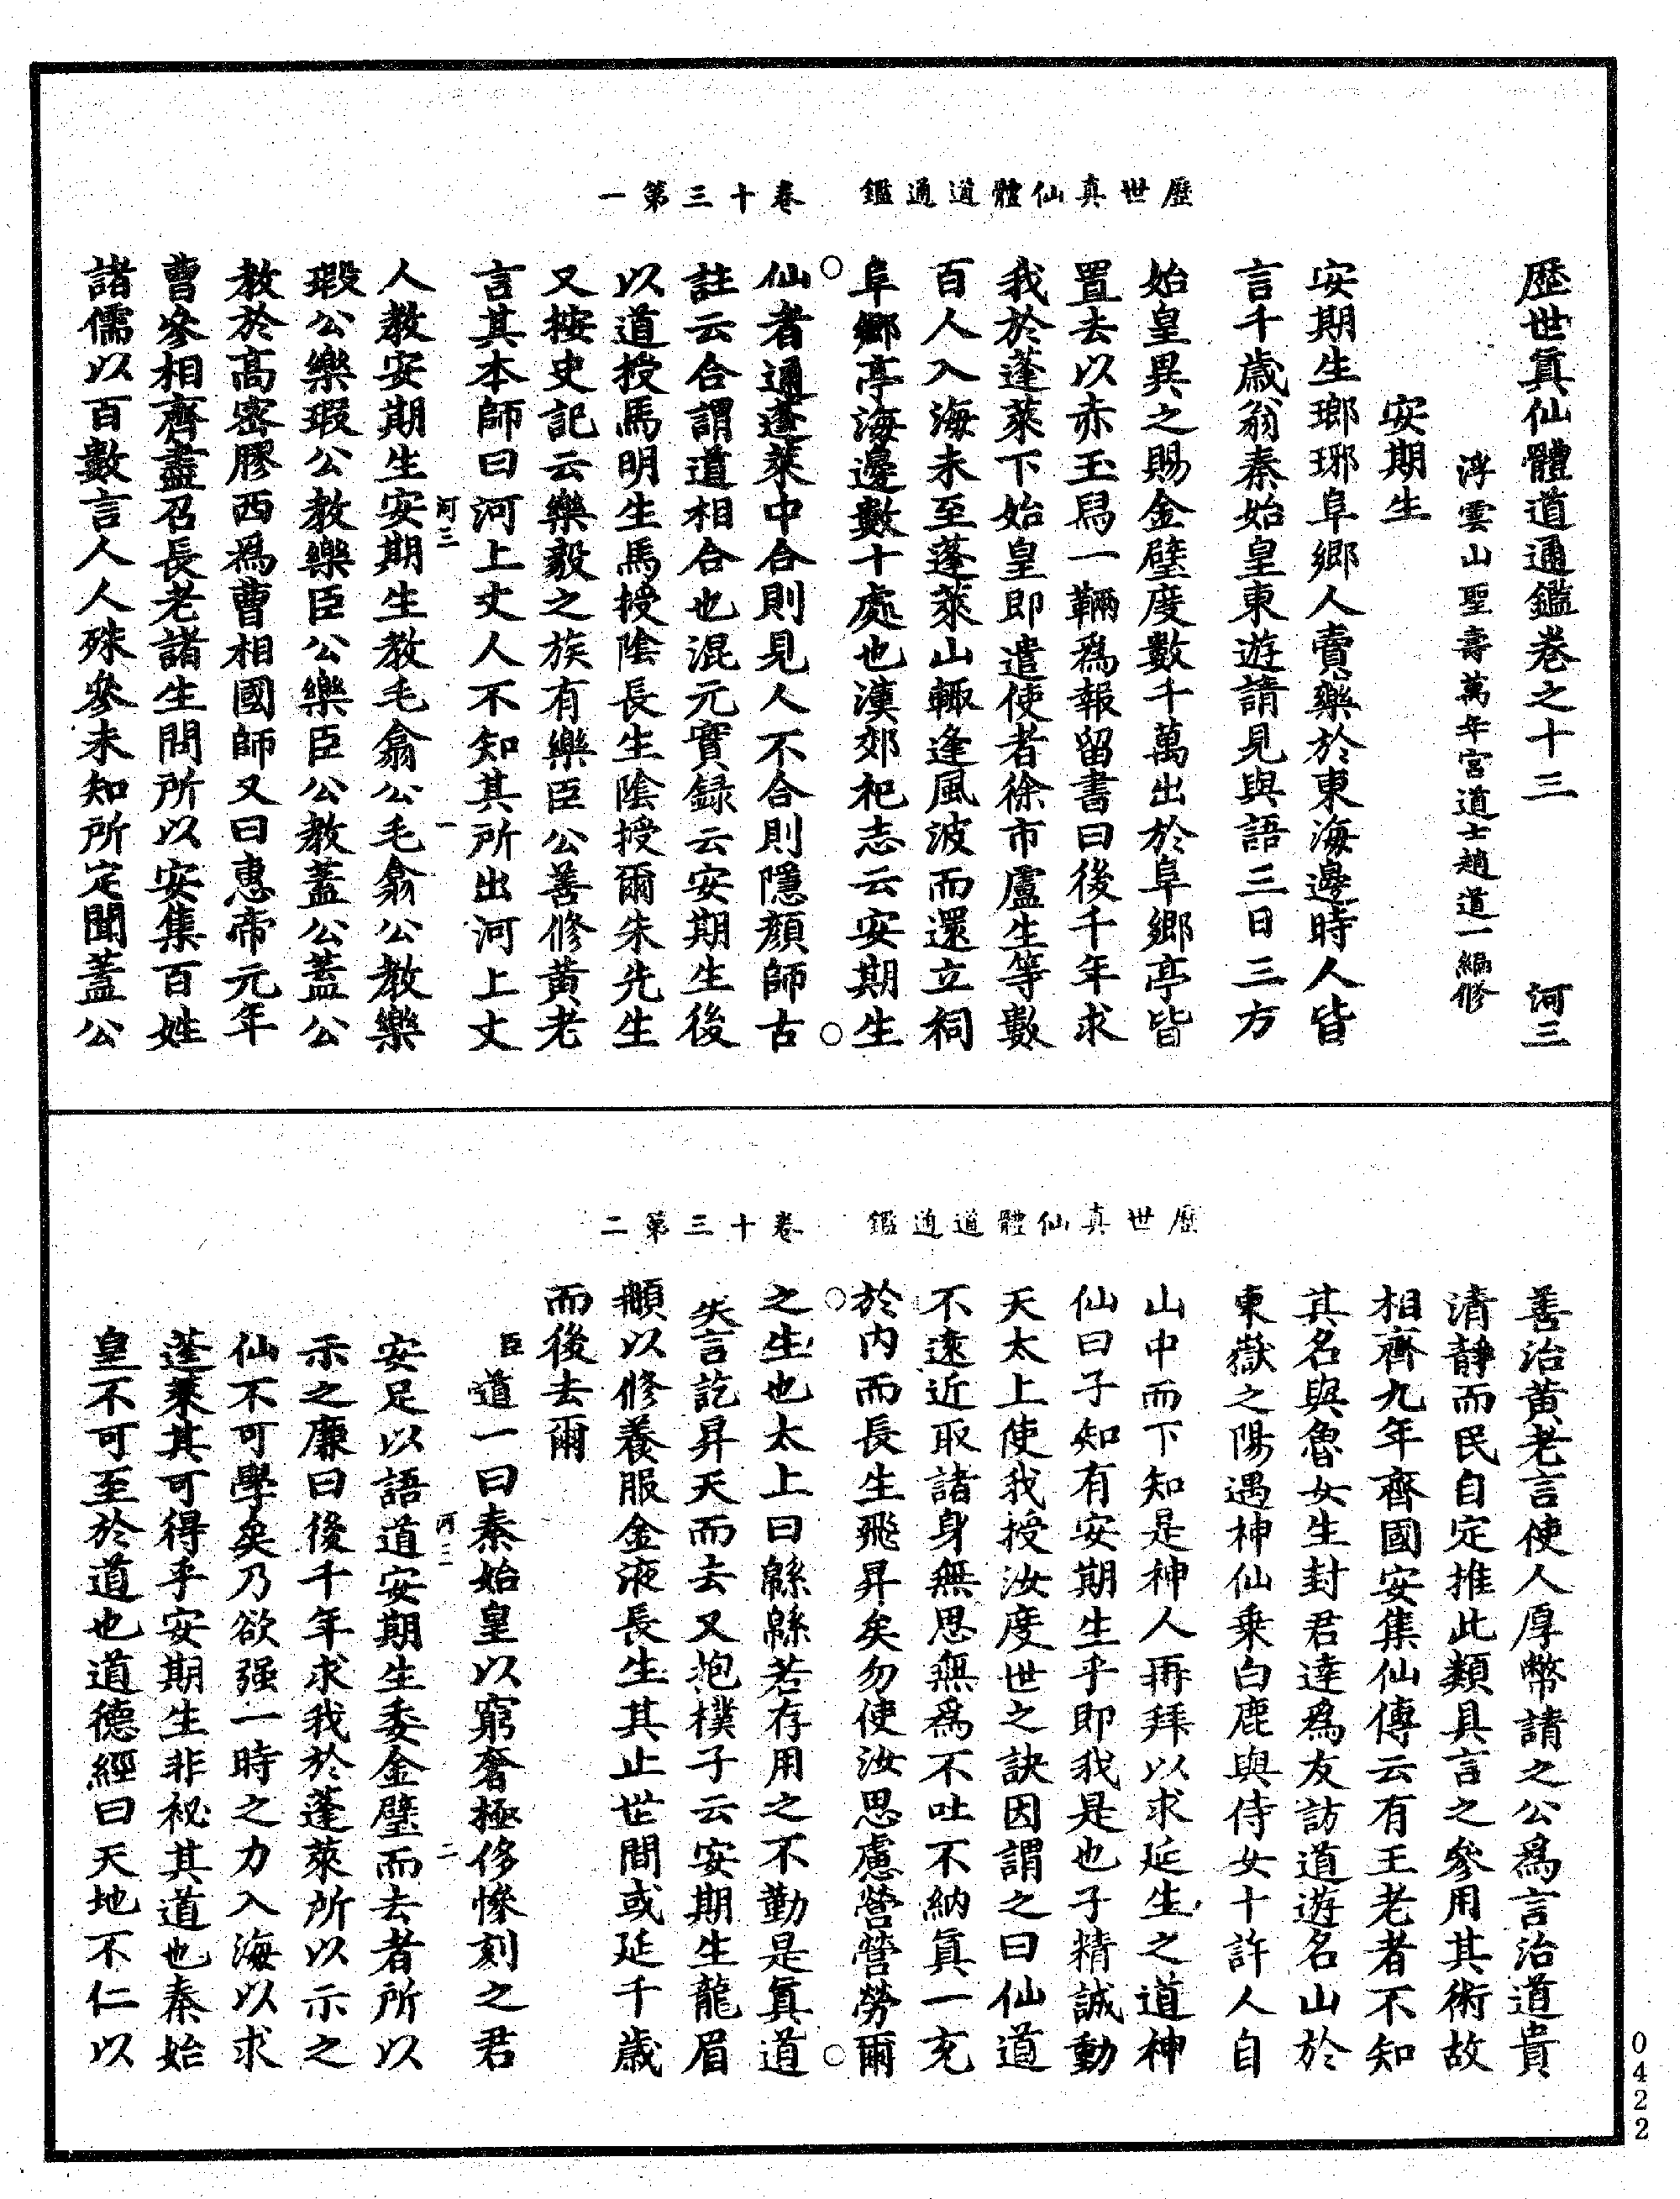 歷世真仙體道通鑑　卷十三第一
歷世真仙體道通鑑卷之十三　　河三
浮雲山聖壽萬年宮道士趙道一編修
安期生
安期生瑯琊阜鄉人賣藥於東海邊時人皆
言千歲翁秦始皇東遊請見與語三日三方
始皇異之賜金璧度數千萬出於阜鄉亭皆
置去以赤玉舄一輛爲報留書曰後千年求
我於蓬萊下始皇即遣使者徐市盧生等數
百人入海未至蓬萊山輒逢風波而還立祠
阜鄉亭海邊數十處也漢郊祀志云安期生
仙者通蓬萊中合則見人不合則隱顏師古
註云合謂道相合也混元實録云安期生後
以道授馬明生馬授陰長生陰授爾朱先生
又按史記云樂毅之族有樂臣公善修黃老
言其本師曰河上丈人不知其所出河上丈
河三　一
人教安期生安期生教毛翕公毛翕公教樂
瑕公樂瑕公教樂臣公樂臣公教蓋公蓋公
教於高密膠西爲曹相國師又曰惠帝元年
曹參相齊盡召長老諸生問所以安集百姓
諸儒以百數言人人殊參未知所定聞蓋公
歷世真仙體道通鑑　卷十三第二
善治黃老言使人厚幣請之公爲言治道貴
清靜而民自定推此類具言之參用其術故
相齊九年齊國安集仙傳云有王老者不知
其名與魯女生封君達爲友訪道遊名山於
東嶽之陽遇神仙乘白鹿與侍女十許人自
山中而下知是神人再拜以求延生之道神
仙曰子知有安期生乎即我是也子精誠動
天太上使我授汝度世之訣因謂之曰仙道
不遠近取諸身無思無爲不吐不納真一充
於內而長生飛昇矣勿使汝思慮營營勞爾
之生也太上曰緜緜若存用之不勤是真道
矣言訖昇天而去又抱樸子云安期生龍眉
顱以修養服金液長生其止世間或延千歲
而後去爾
臣道一曰秦始皇以窮奢極侈慘刻之君
河三　二
安足以語道安期生委金璧而去者所以
示之廉曰後千年求我於蓬萊所以示之
仙不可學矣乃欲强一時之力入海以求
蓬萊其可得乎安期生非祕其道也秦始
皇不可至於道也道德經曰天地不仁以
0422